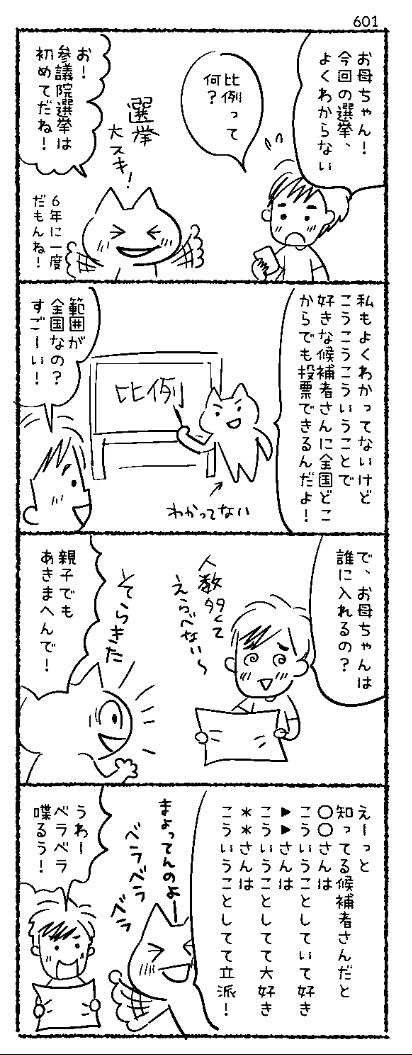 601
お母ちゃん！
今回の選挙、
よくわからない
比例って
何？
選挙
大スキ！
お！
参議院選挙は
初めてだね！
6年に一度
だもんね！
私もよくわかってないけど
こうこうこういうことで
好きな候補者さんに全国どこ
からでも投票できるんだよ！
比例
わかってない
範囲が
全国なの？
すごーい！
で、お母ちゃんは
誰に入れるの？
人数多くて
えらべない～
そらきた
親子でも
あきまへんで！
えーっと
知ってる候補者さんだと
〇〇さんは
こういうことしていて好き
▶▶さんは
こういうことしてて大好き
＊＊さんは
こういうことしてて立派！
まよってんのよー
ベラベラ
ベラ
うわー
ベラベラ
喋るぅ！